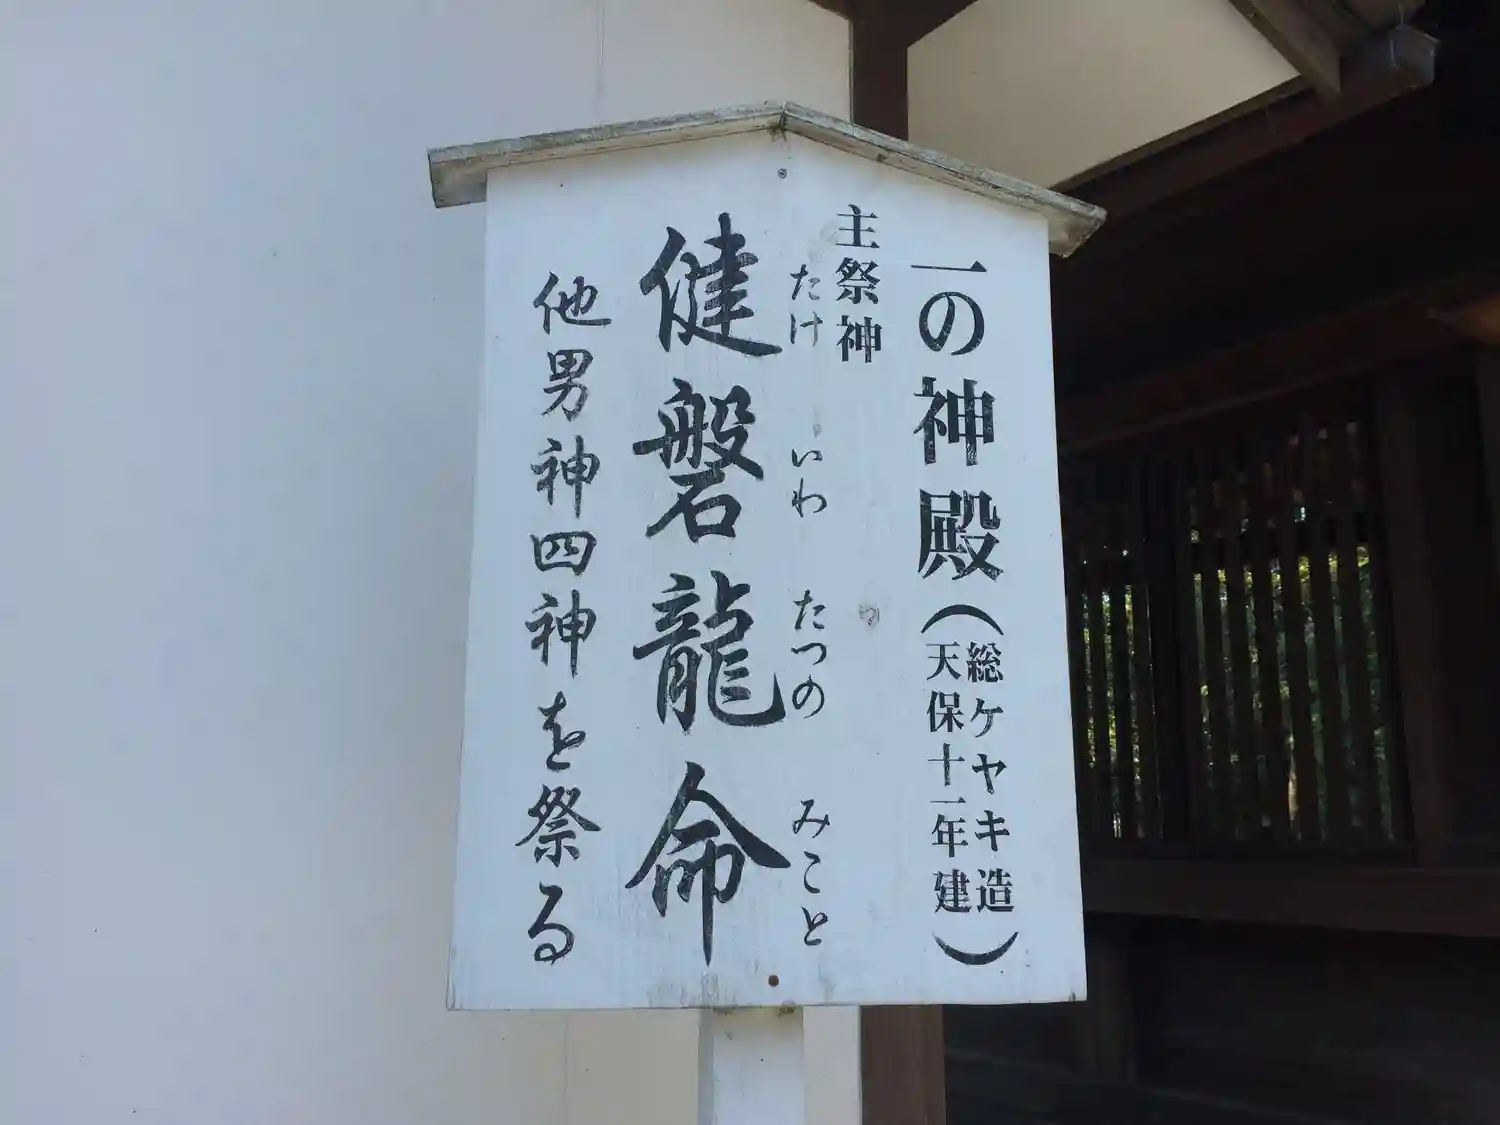 一の神殿(総ケヤキ造
天保十一年建)
主祭神
たけ いわ たつの みこと
健磐龍命
他男神四神を祭る